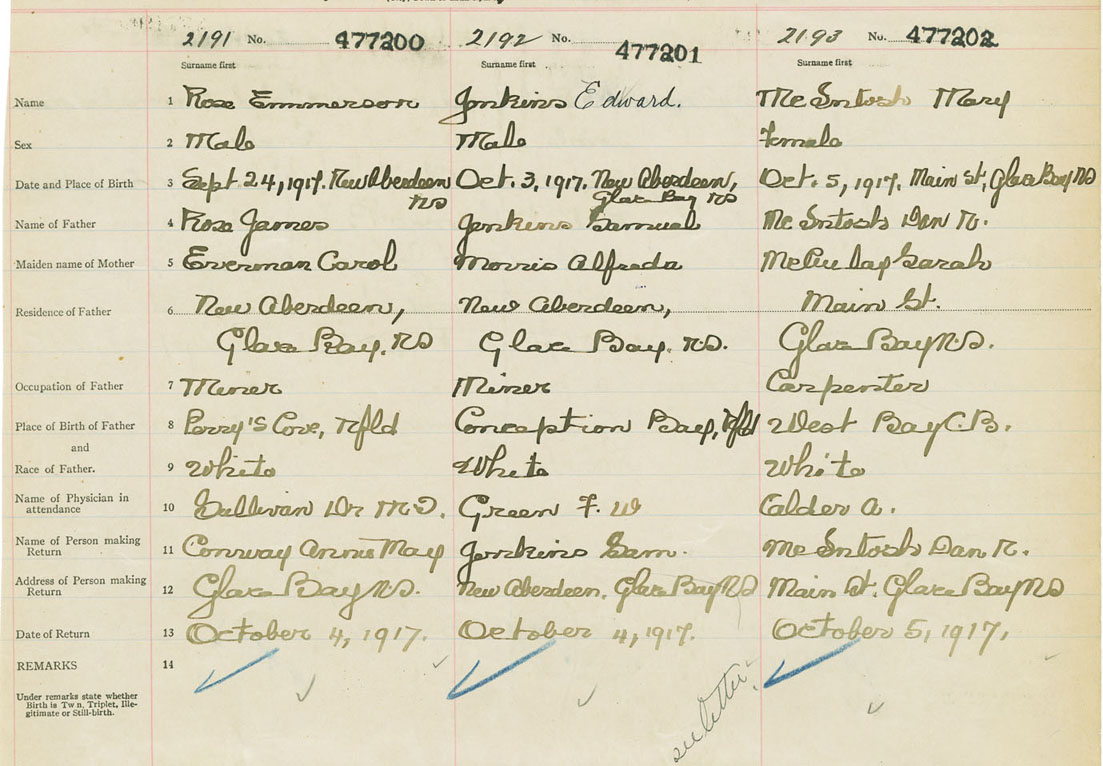 2191 No. 477200 2192 No. 477201 2193 No. 477202
Surname first Surname first Surname first
Name 1 Rose Emmerson Jenkins Edward. McIntosh Mary
Sex 2 Male Male Female
Date and Place of Birth 3 Sept 24, 1917. New Aberdeen NS Oct. 3, 1917. New Aberdeen, Glace Bay NS Oct. 5, 1917, Main St, Glace Bay NS
Name of Father 4 Rose James Jenkins Samuel McIntosh Dan R.
Maiden name of Mother 5 Everman Carol Morris Alfreda Sarah
Residence of Father 6 New Aberdeen, New Aberdeen, Main St.
Glace Bay, NS Glace Bay. N.S. Glace Bay N.S.
Occupation of Father 7 Miner Miner Carpenter
Place of Birth of Father 8 Perry's Cove, Nfld Conception Bay, Nfld West Bay C.B.
and
Race of Father. 9 White White White
Name of Physician in
attendance 10 Sullivan Dr M.D. Green F. W Calder A.
Name of Person making
Return 11 Conway Annie May Jenkins Sam. McIntosh Dan R.
Address of Person making
Return 12 Glace Bay N.S. New Aberdeen, Glace Bay NS Main St. Glace Bay NS
Date of Return 13 October 4, 1917. October 4, 1917. October 5, 1917,
REMARKS 14
Under remarks state whether
Birth is Tw n, Triplet, Ille-
gitimate or Still-birth.
see letter